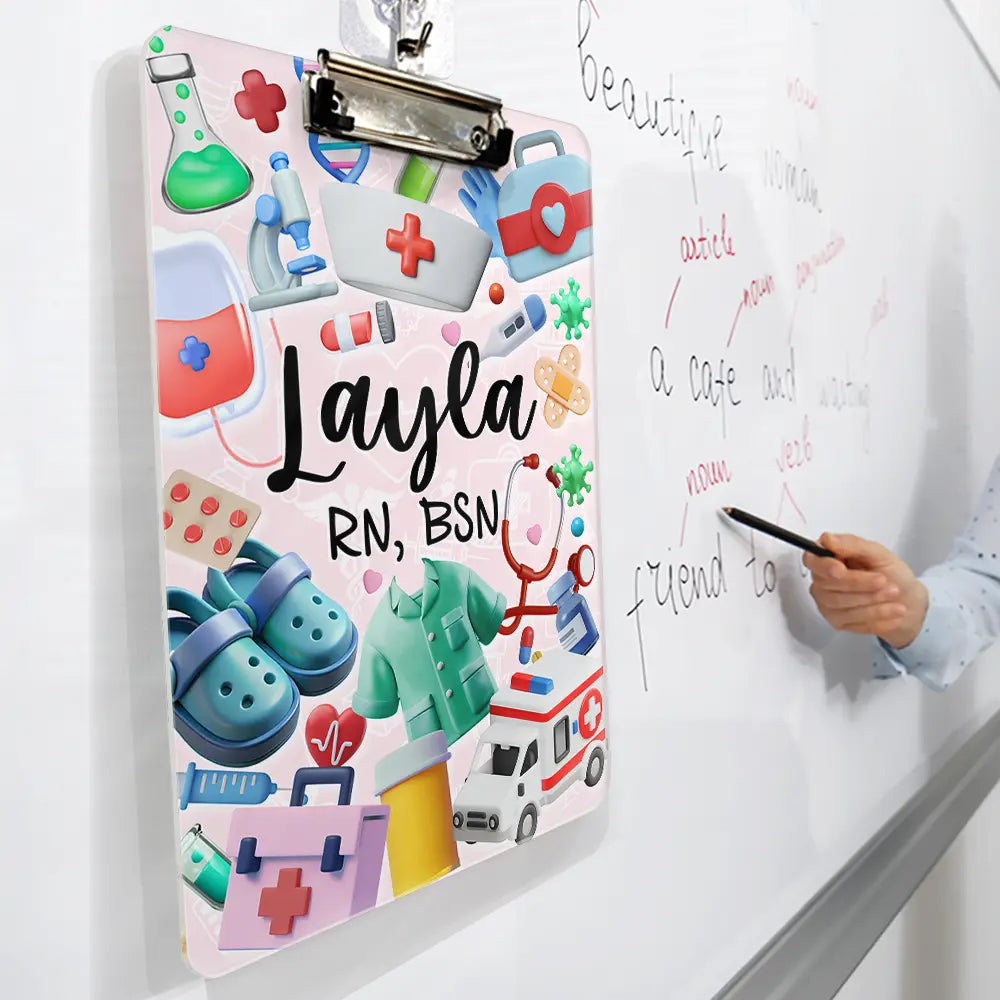 Layla
RN, BSN
beautiful
noun
woman
article
noun
a cafe and waiting
noun
verb
friend to